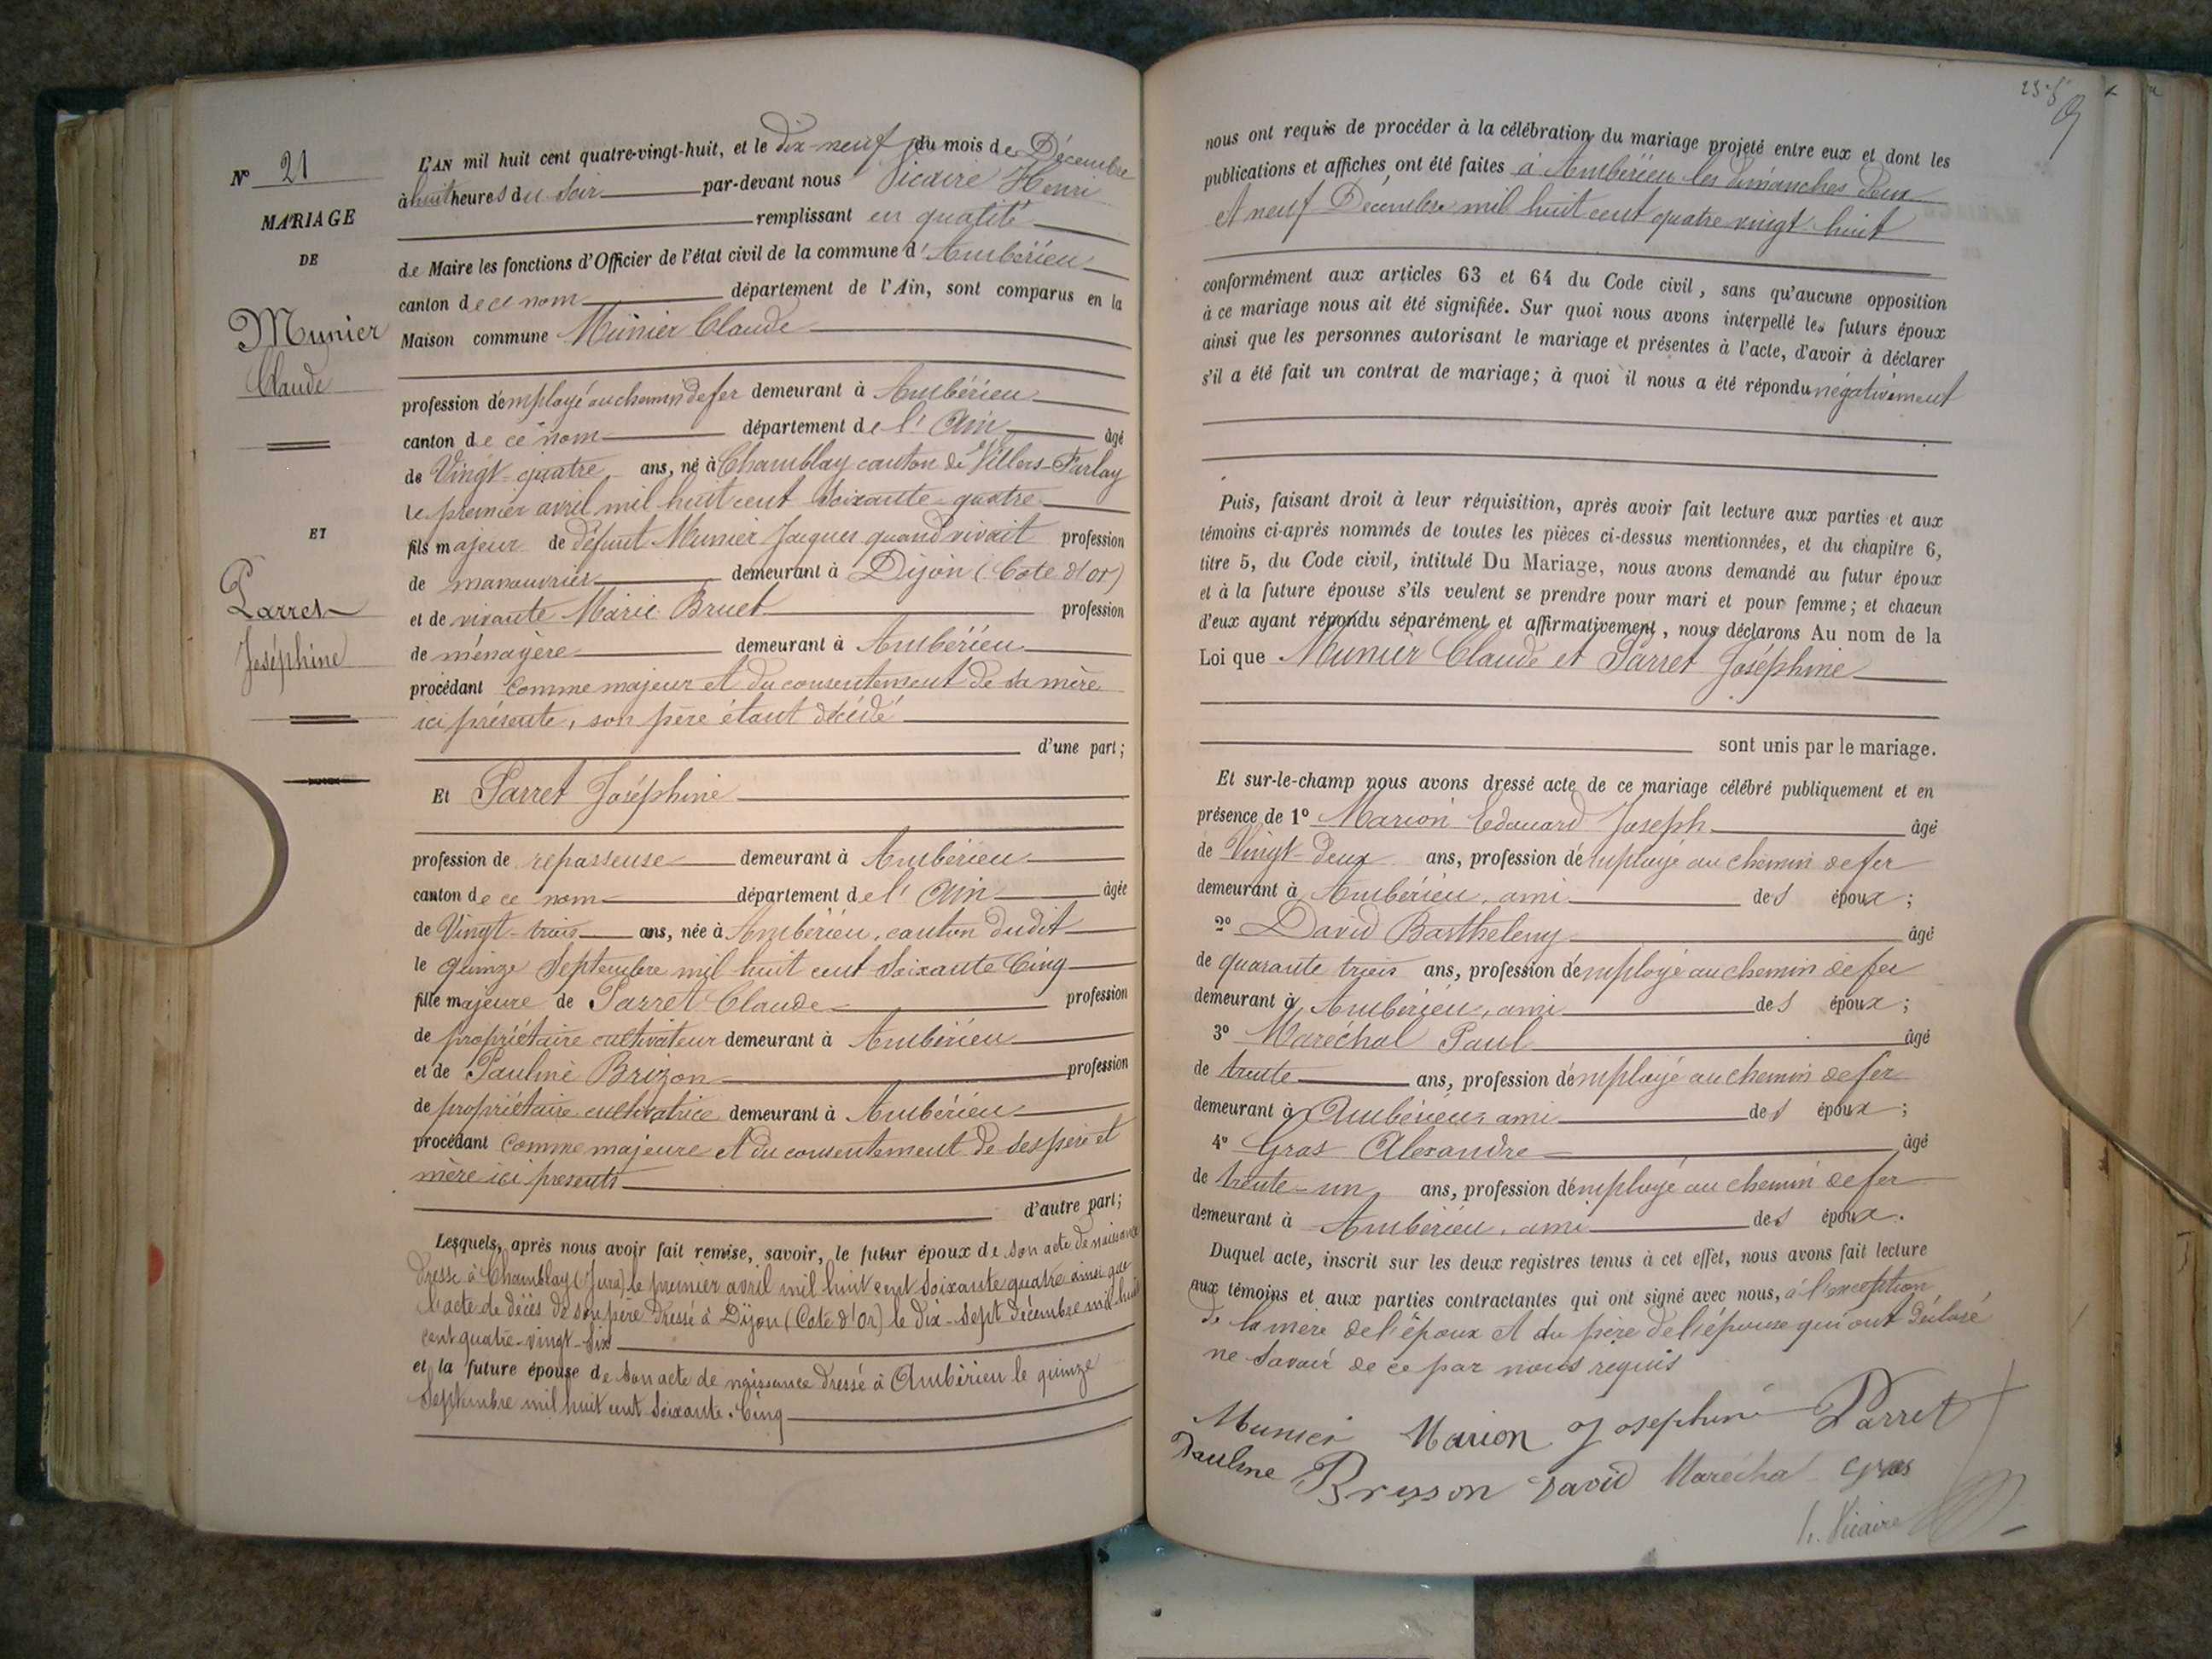 N° 21
MARIAGE
DE
Munier
Claude
ET
Parret
Joséphine
L'AN mil huit cent quatre-vingt-huit, et le dix-neuf du mois de Décembre
à huit heures du soir par-devant nous Vicaire Henri
remplissant en qualité
de Maire les fonctions d'Officier de l'état civil de la commune d'Ambérieu
canton de ce nom département de l'Ain, sont comparus en la
Maison commune Munier Claude
profession d'employé au chemin de fer demeurant à Ambérieu
canton de ce nom département de l'Ain âgé
de Vingt-quatre ans, né à Chamblay canton de Villers-Farlay
le premier avril mil huit cent soixante-quatre
fils majeur de défunt Munier Jacques quand vivait profession
de manouvrier demeurant à Dijon (Cote d'or)
et de vivante Marie Bruet profession
de ménagère demeurant à Ambérieu
procédant comme majeur et du consentement de sa mère
ici présente, son père étant décédé
d'une part;
Et Parret Joséphine
profession de repasseuse demeurant à Ambérieu
canton de ce nom département de l'Ain âgée
de Vingt-trois ans, née à Ambérieu, canton dudit
le quinze Septembre mil huit cent soixante Cinq
fille majeure de Parret Claude profession
de propriétaire cultivateur demeurant à Ambérieu
et de Pauline Brizon profession
de propriétaire cultivatrice demeurant à Ambérieu
procédant comme majeure et du consentement de ses père et
mère ici présents
d'autre part;
Lesquels, après nous avoir fait remise, savoir, le futur époux de son acte de naissance
dressé à Chamblay (Jura) le premier avril mil huit cent soixante quatre ainsi que
l'acte de décès de son père dressé à Dijon (Cote d'Or) le dix-sept décembre mil huit
cent quatre-vingt-six
et la future épouse de son acte de naissance dressé à Ambérieu le quinze
Septembre mil huit cent soixante-Cinq
nous ont requis de procéder à la célébration du mariage projeté entre eux et dont les
publications et affiches ont été faites à Ambérieu les dimanches deux
et neuf Décembre mil huit cent quatre vingt huit
conformément aux articles 63 et 64 du Code civil, sans qu'aucune opposition
à ce mariage nous ait été signifiée. Sur quoi nous avons interpellé les futurs époux
ainsi que les personnes autorisant le mariage et présentes à l'acte, d'avoir à déclarer
s'il a été fait un contrat de mariage; à quoi il nous a été répondu négativement
Puis, faisant droit à leur réquisition, après avoir fait lecture aux parties et aux
témoins ci-après nommés de toutes les pièces ci-dessus mentionnées, et du chapitre 6,
titre 5, du Code civil, intitulé Du Mariage, nous avons demandé au futur époux
et à la future épouse s'ils veulent se prendre pour mari et pour femme; et chacun
d'eux ayant répondu séparément et affirmativement, nous déclarons Au nom de la
Loi que Munier Claude et Parret Joséphine
sont unis par le mariage.
Et sur-le-champ nous avons dressé acte de ce mariage célébré publiquement et en
présence de 1° Marion Edouard Joseph âgé
de Vingt-deux ans, profession d'employé au chemin de fer
demeurant à Ambérieu, ami des époux;
2° David Barthelemy âgé
de quarante trois ans, profession d'employé au chemin de fer
demeurant à Ambérieu, ami des époux;
3° Maréchal Paul âgé
de trente ans, profession d'employé au chemin de fer
demeurant à Ambérieu, ami des époux;
4° Gras Alexandre âgé
de trente-un ans, profession d'employé au chemin de fer
demeurant à Ambérieu, ami des époux.
Duquel acte, inscrit sur les deux registres tenus à cet effet, nous avons fait lecture
aux témoins et aux parties contractantes qui ont signé avec nous, à l'exception
de la mère de l'époux et du père de l'épouse qui ont déclaré
ne savoir de ce par nous requis
Munier Marion Joséphine Parret
Pauline Brysson David Maréchal Gras
h. Vicaire